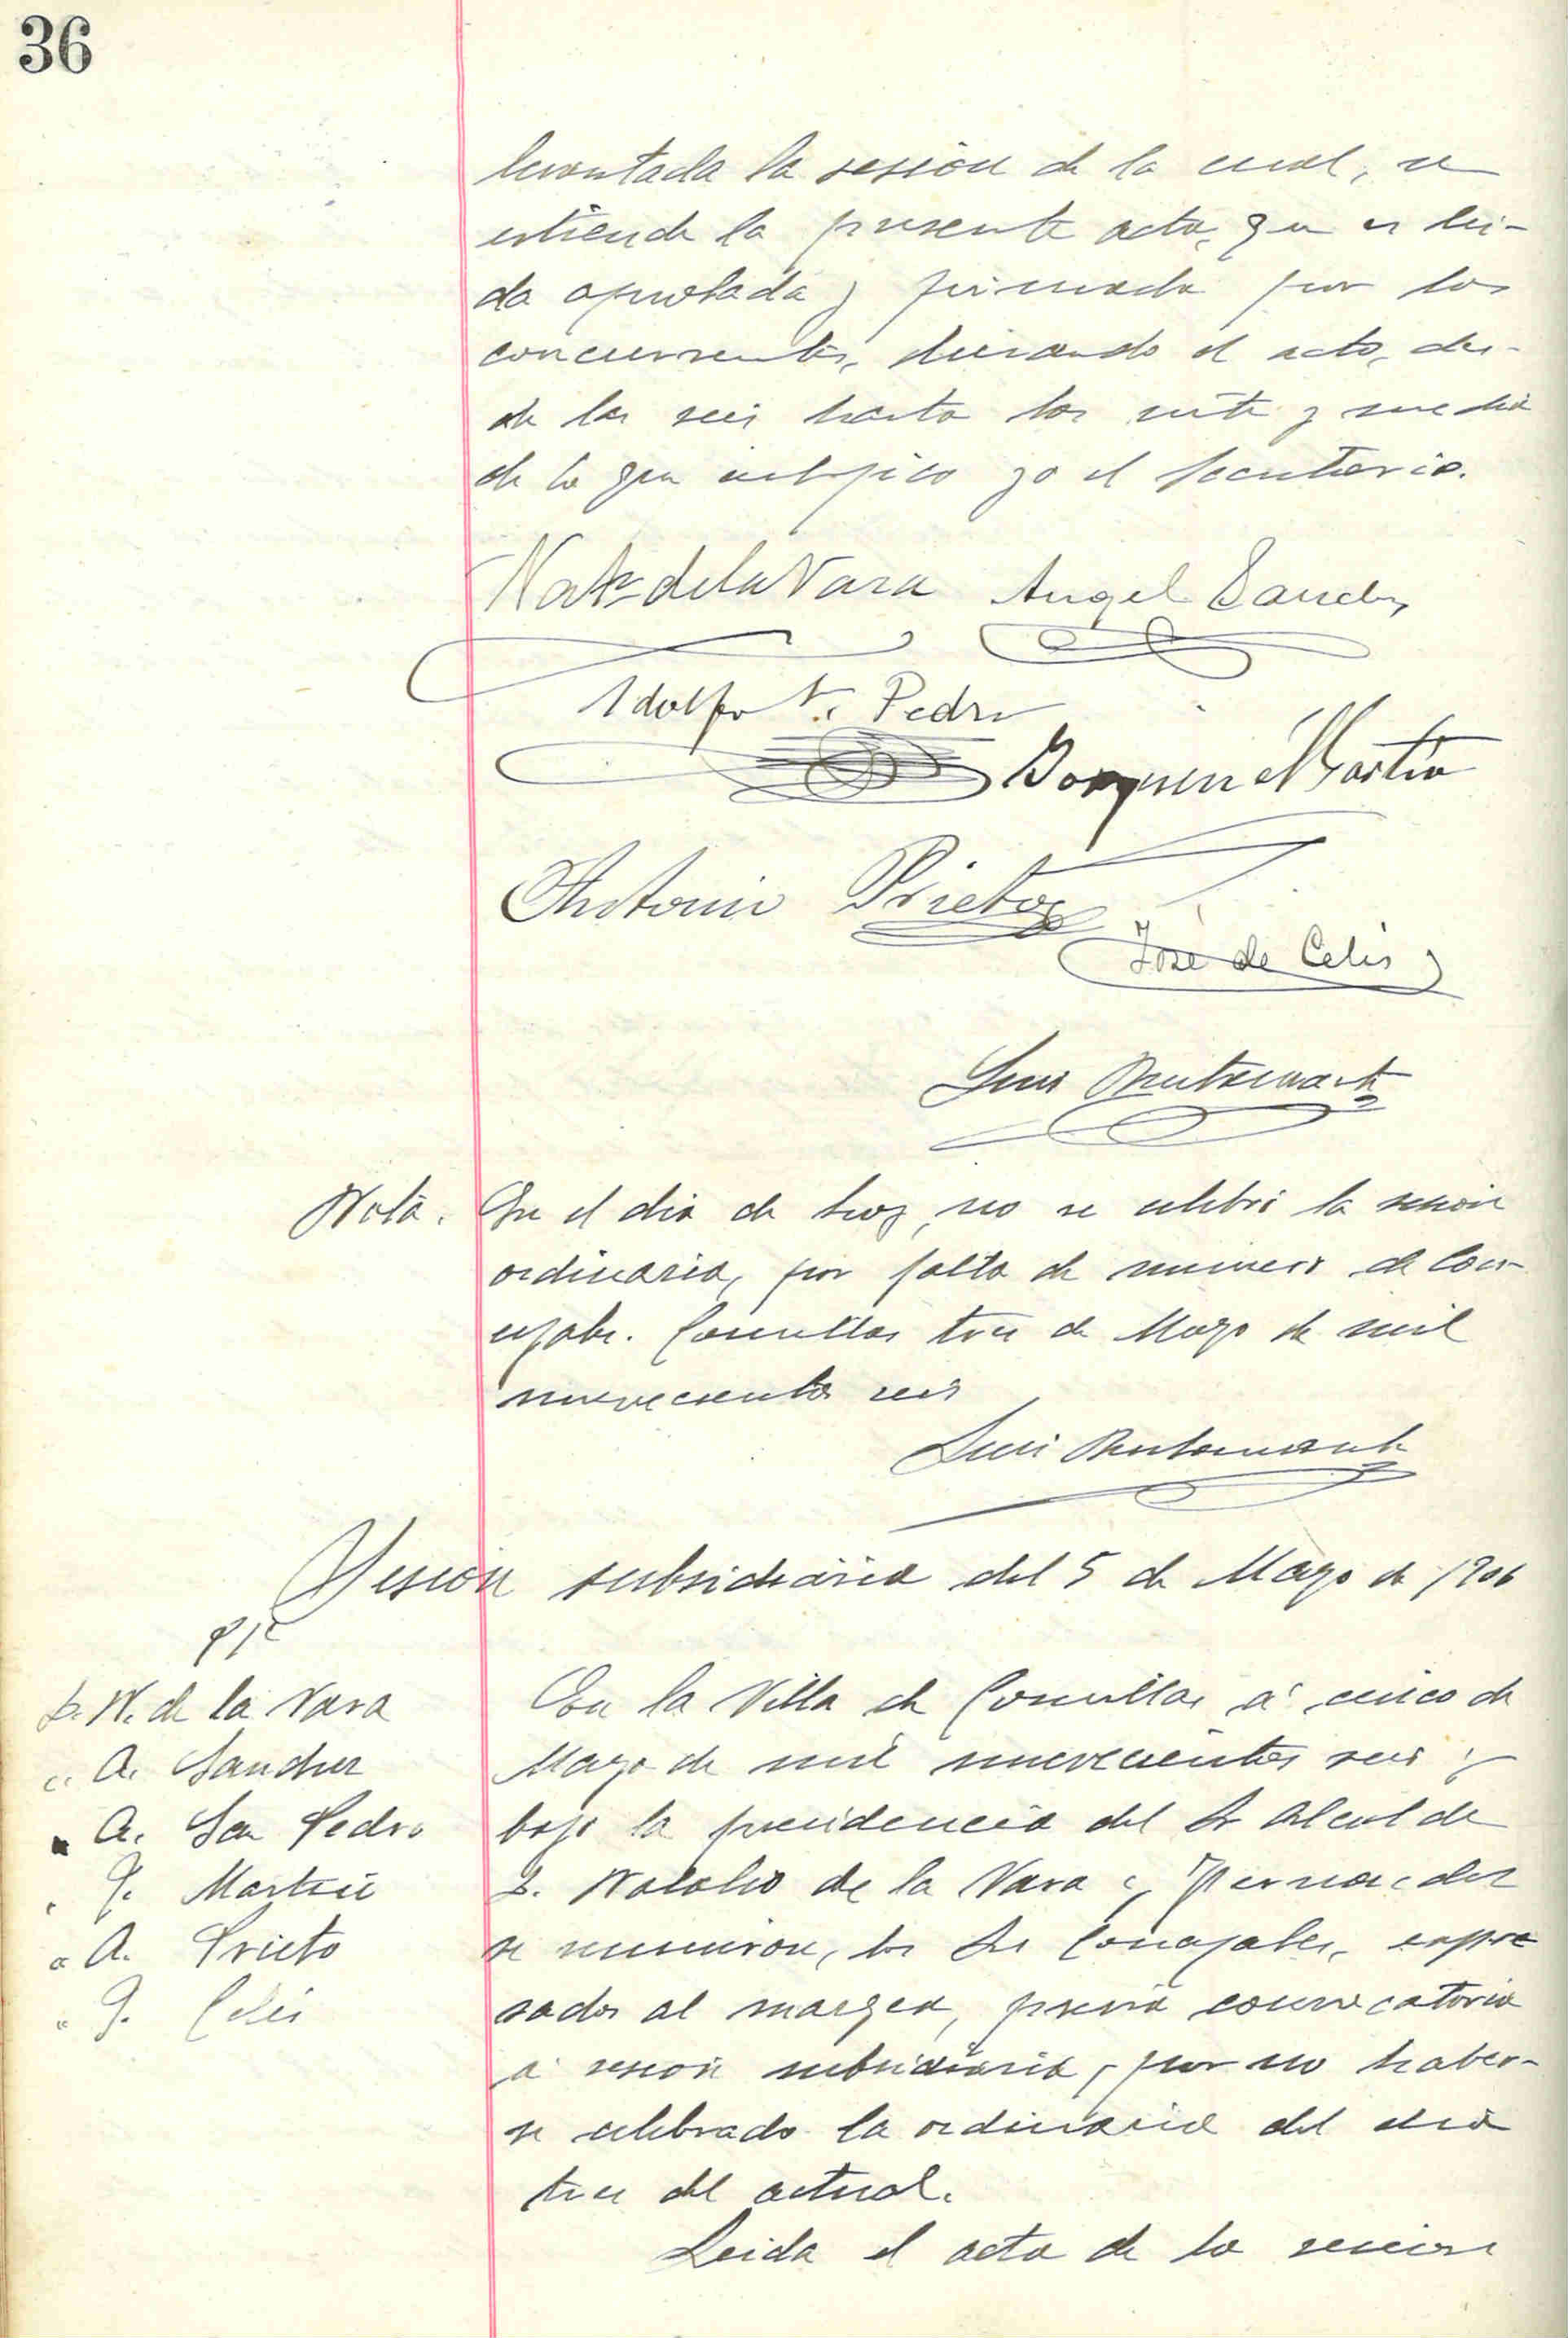 36
levantada la sesión de la cual, se
estiende la presente acta, que es lei-
da aprobada y firmada por los
concurrentes, durando el acto, des-
de las seis hasta las siete y media
de lo que certifico yo el Secretario.
Nat. de la Vara Angel Sanchez
Adolfo S. Pedro
Joaquin Martin
Antonio Prieto
José de Celis
Luis
Nota. En el dia de hoy, no se celebró la sesión
ordinaria, por falta de número de Con-
cejales. Comillas tres de Mayo de mil
novecientos seis
Luis
Sesión subsidiaria del 5 de Mayo de 1906
D. N. de la Vara
" A. Sanchez
" A. San Pedro
" J. Martin
" A. Prieto
" J. Celis
En la Villa de Comillas á cinco de
Mayo de mil novecientos seis y
bajo la presidencia del Sr Alcalde
D. Natalio de la Vara y Fernandez
se reunieron, los Srs Concejales, expre
sados al margen, previa convocatoria
á sesión subsidiaria, por no haber-
se celebrado la ordinaria del dia
tres del actual.
Leida el acta de la sesion